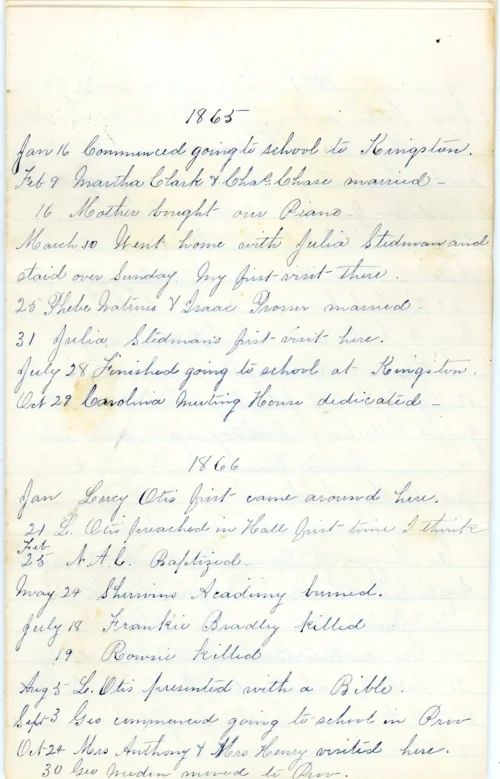 1865
Jan 16 Commenced going to school to Kingston.
Feb 9 Martha Clark & Chas. Chase married -
16 Mother bought our Piano.
March 10 Went home with Julia Stedman and
staid over Sunday. My first visit there.
25 Phebe Watrous & Isaac Prosser married.
31 Julia Stedman's first visit here.
July 28 Finished going to school at Kingston.
Oct 29 Carolina Meeting House dedicated -
1866
Jan Lucy Otis first came around here.
21 L. Otis preached in Hall first time I think
Feb
25 N.A.C. Baptized.
May 24 Academy burned.
July 18 Frankie Bradley killed
19 killed
Aug 5 L. Otis presented with a Bible.
Sept 3 Geo commenced going to school in Prov
Oct 24 Mrs Anthony & Mrs Henry visited here.
30 Geo moved to Prov.